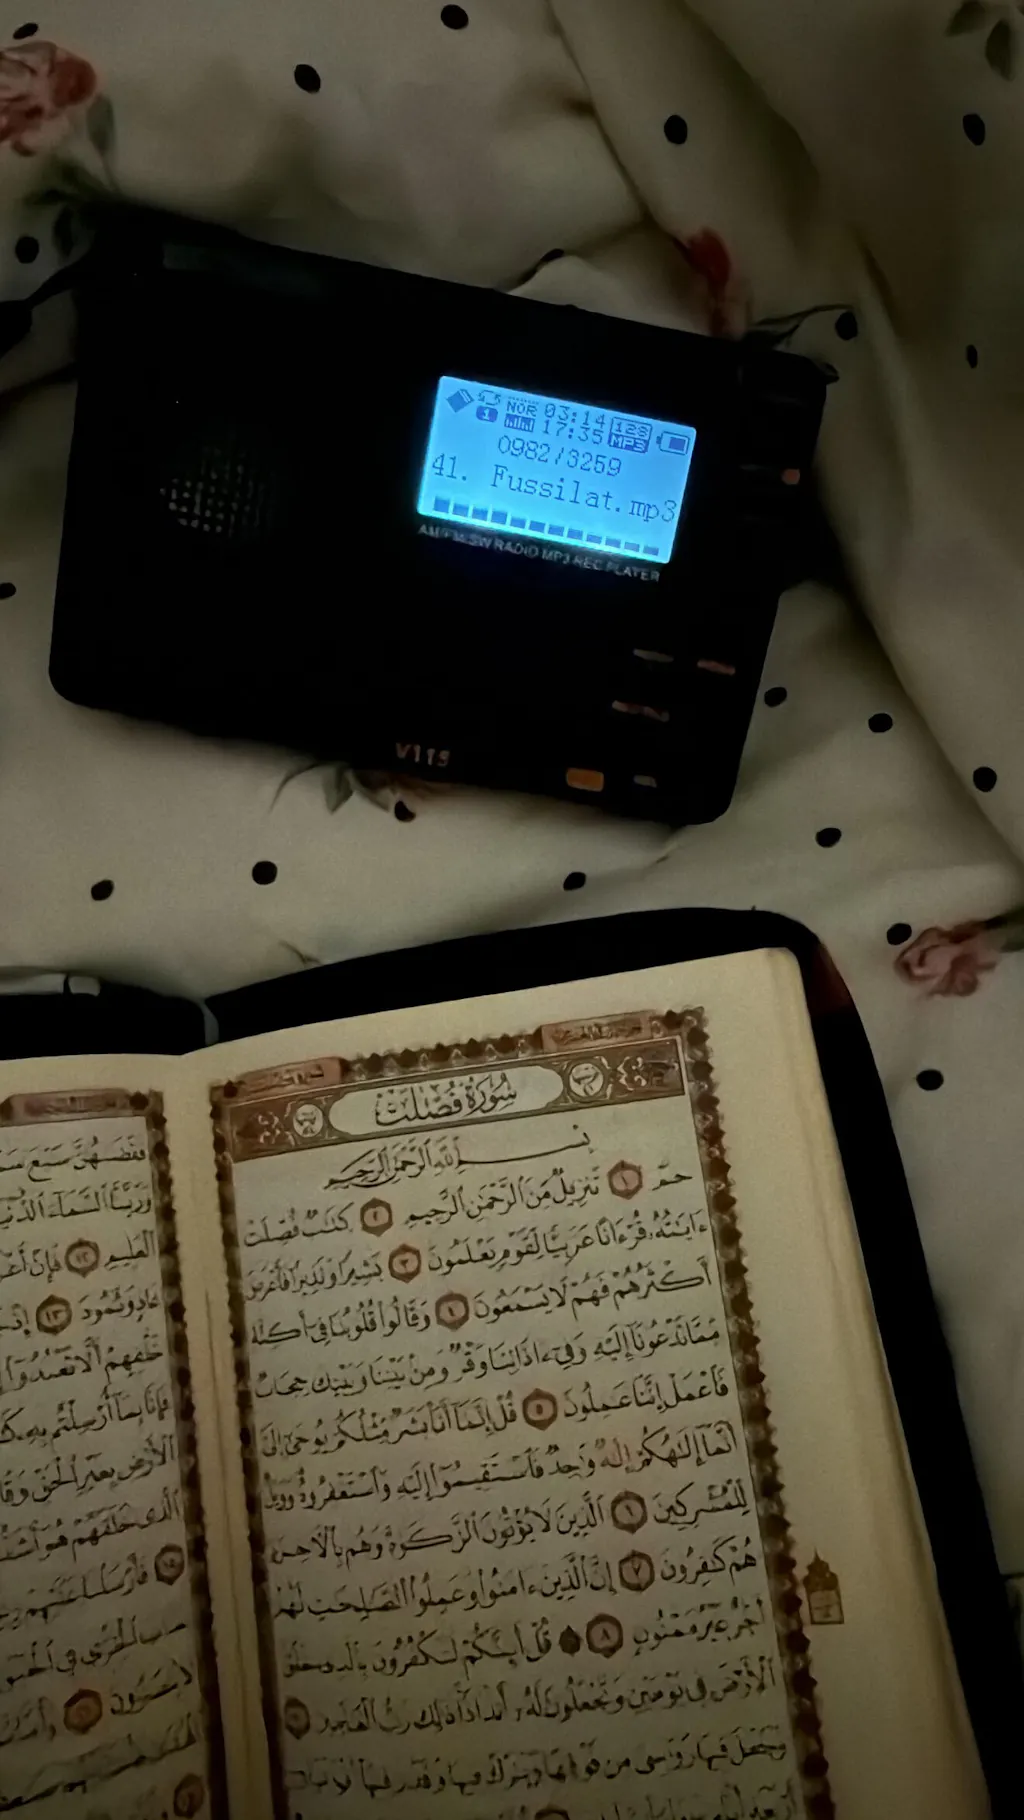 NOR 03:14 128
1 17:35 MP3
0982/3259
41. Fussilat.mp3
AM/FM/SW RADIO MP3 REC PLAYER
V115
سُورَةُ فُصِّلَتْ
بِسْمِ ٱللَّهِ ٱلرَّحْمَٰنِ ٱلرَّحِيمِ
حمٓ ١ تَنزِيلٌ مِّنَ ٱلرَّحْمَٰنِ ٱلرَّحِيمِ ٢ كِتَٰبٌ فُصِّلَتْ
ءَايَٰتُهُۥ قُرْءَانًا عَرَبِيًّا لِّقَوْمٍ يَعْلَمُونَ ٣ بَشِيرًا وَنَذِيرًا فَأَعْرَضَ
أَكْثَرُهُمْ فَهُمْ لَا يَسْمَعُونَ ٤ وَقَالُوا۟ قُلُوبُنَا فِىٓ أَكِنَّةٍ
مِّمَّا تَدْعُونَآ إِلَيْهِ وَفِىٓ ءَاذَانِنَا وَقْرٌ وَمِنۢ بَيْنِنَا وَبَيْنِكَ حِجَابٌ
فَٱعْمَلْ إِنَّنَا عَٰمِلُونَ ٥ قُلْ إِنَّمَآ أَنَا۠ بَشَرٌ مِّثْلُكُمْ يُوحَىٰٓ إِلَىَّ
أَنَّمَآ إِلَٰهُكُمْ إِلَٰهٌ وَٰحِدٌ فَٱسْتَقِيمُوٓا۟ إِلَيْهِ وَٱسْتَغْفِرُوهُ وَوَيْلٌ
لِّلْمُشْرِكِينَ ٦ ٱلَّذِينَ لَا يُؤْتُونَ ٱلزَّكَوٰةَ وَهُم بِٱلْءَاخِرَةِ
هُمْ كَٰفِرُونَ ٧ إِنَّ ٱلَّذِينَ ءَامَنُوا۟ وَعَمِلُوا۟ ٱلصَّٰلِحَٰتِ لَهُمْ
أَجْرٌ غَيْرُ مَمْنُونٍ ٨ قُلْ أَئِنَّكُمْ لَتَكْفُرُونَ بِٱلَّذِى خَلَقَ
ٱلْأَرْضَ فِى يَوْمَيْنِ وَتَجْعَلُونَ لَهُۥٓ أَندَادًا ذَٰلِكَ رَبُّ ٱلْعَٰلَمِينَ ٩
وَجَعَلَ فِيهَا رَوَٰسِىَ مِن فَوْقِهَا وَبَٰرَكَ فِيهَا وَقَدَّرَ فِيهَآ
فَقَضَىٰهُنَّ سَبْعَ
وَزَيَّنَّا ٱلسَّمَآءَ ٱلدُّنْيَا
ٱلْعَلِيمِ ١٢ فَإِنْ
عَادٍ وَثَمُودَ ١٣
خَلْفِهِمْ أَلَّا تَعْبُدُوٓا۟
فَإِنَّا بِمَآ أُرْسِلْتُم بِهِۦ
ٱلْأَرْضِ بِغَيْرِ ٱلْحَقِّ
ٱلَّذِى خَلَقَهُمْ هُوَ
١٥ فَأَرْسَلْنَا عَلَيْهِمْ
ٱلْخِزْىِ فِى
لَا يُنصَرُونَ ١٦